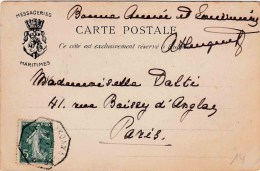 Bonne Année et
MESSAGERIES
MARITIMES
CARTE POSTALE
Ce côté est exclusivement réservé à
Mademoiselle Dalti
41. rue Boissy d'Anglas
Paris.